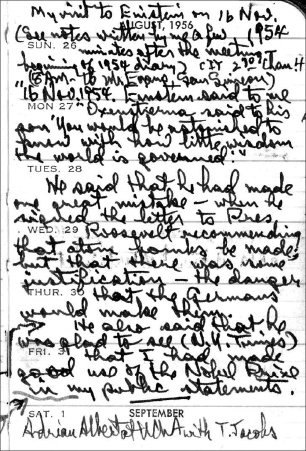 My visit to Einstein on 16 Nov.
AUGUST, 1956
(See notes written by me a few 1954
SUN. 26
minutes after the meeting
beginning of 1954 diary)
"16 Nov. 1954 Einstein said to me
MON 27
"Oxenstierna said to his
son 'You would be astonished to
know with how little wisdom
the world is governed.'"
TUES. 28
He said that he had made
one great mistake – when he
signed the letter to Pres.
WED. 29
Roosevelt recommending
that atom bombs be made;
but that there was some
justification – the danger
THUR. 30
that the Germans
would make them.
He also said that he
was glad to see (N.Y. Times)
FRI. 31
that I had made
good use of the Nobel Prize
in my public statements.
SAT. 1
SEPTEMBER
with T. Jacobs